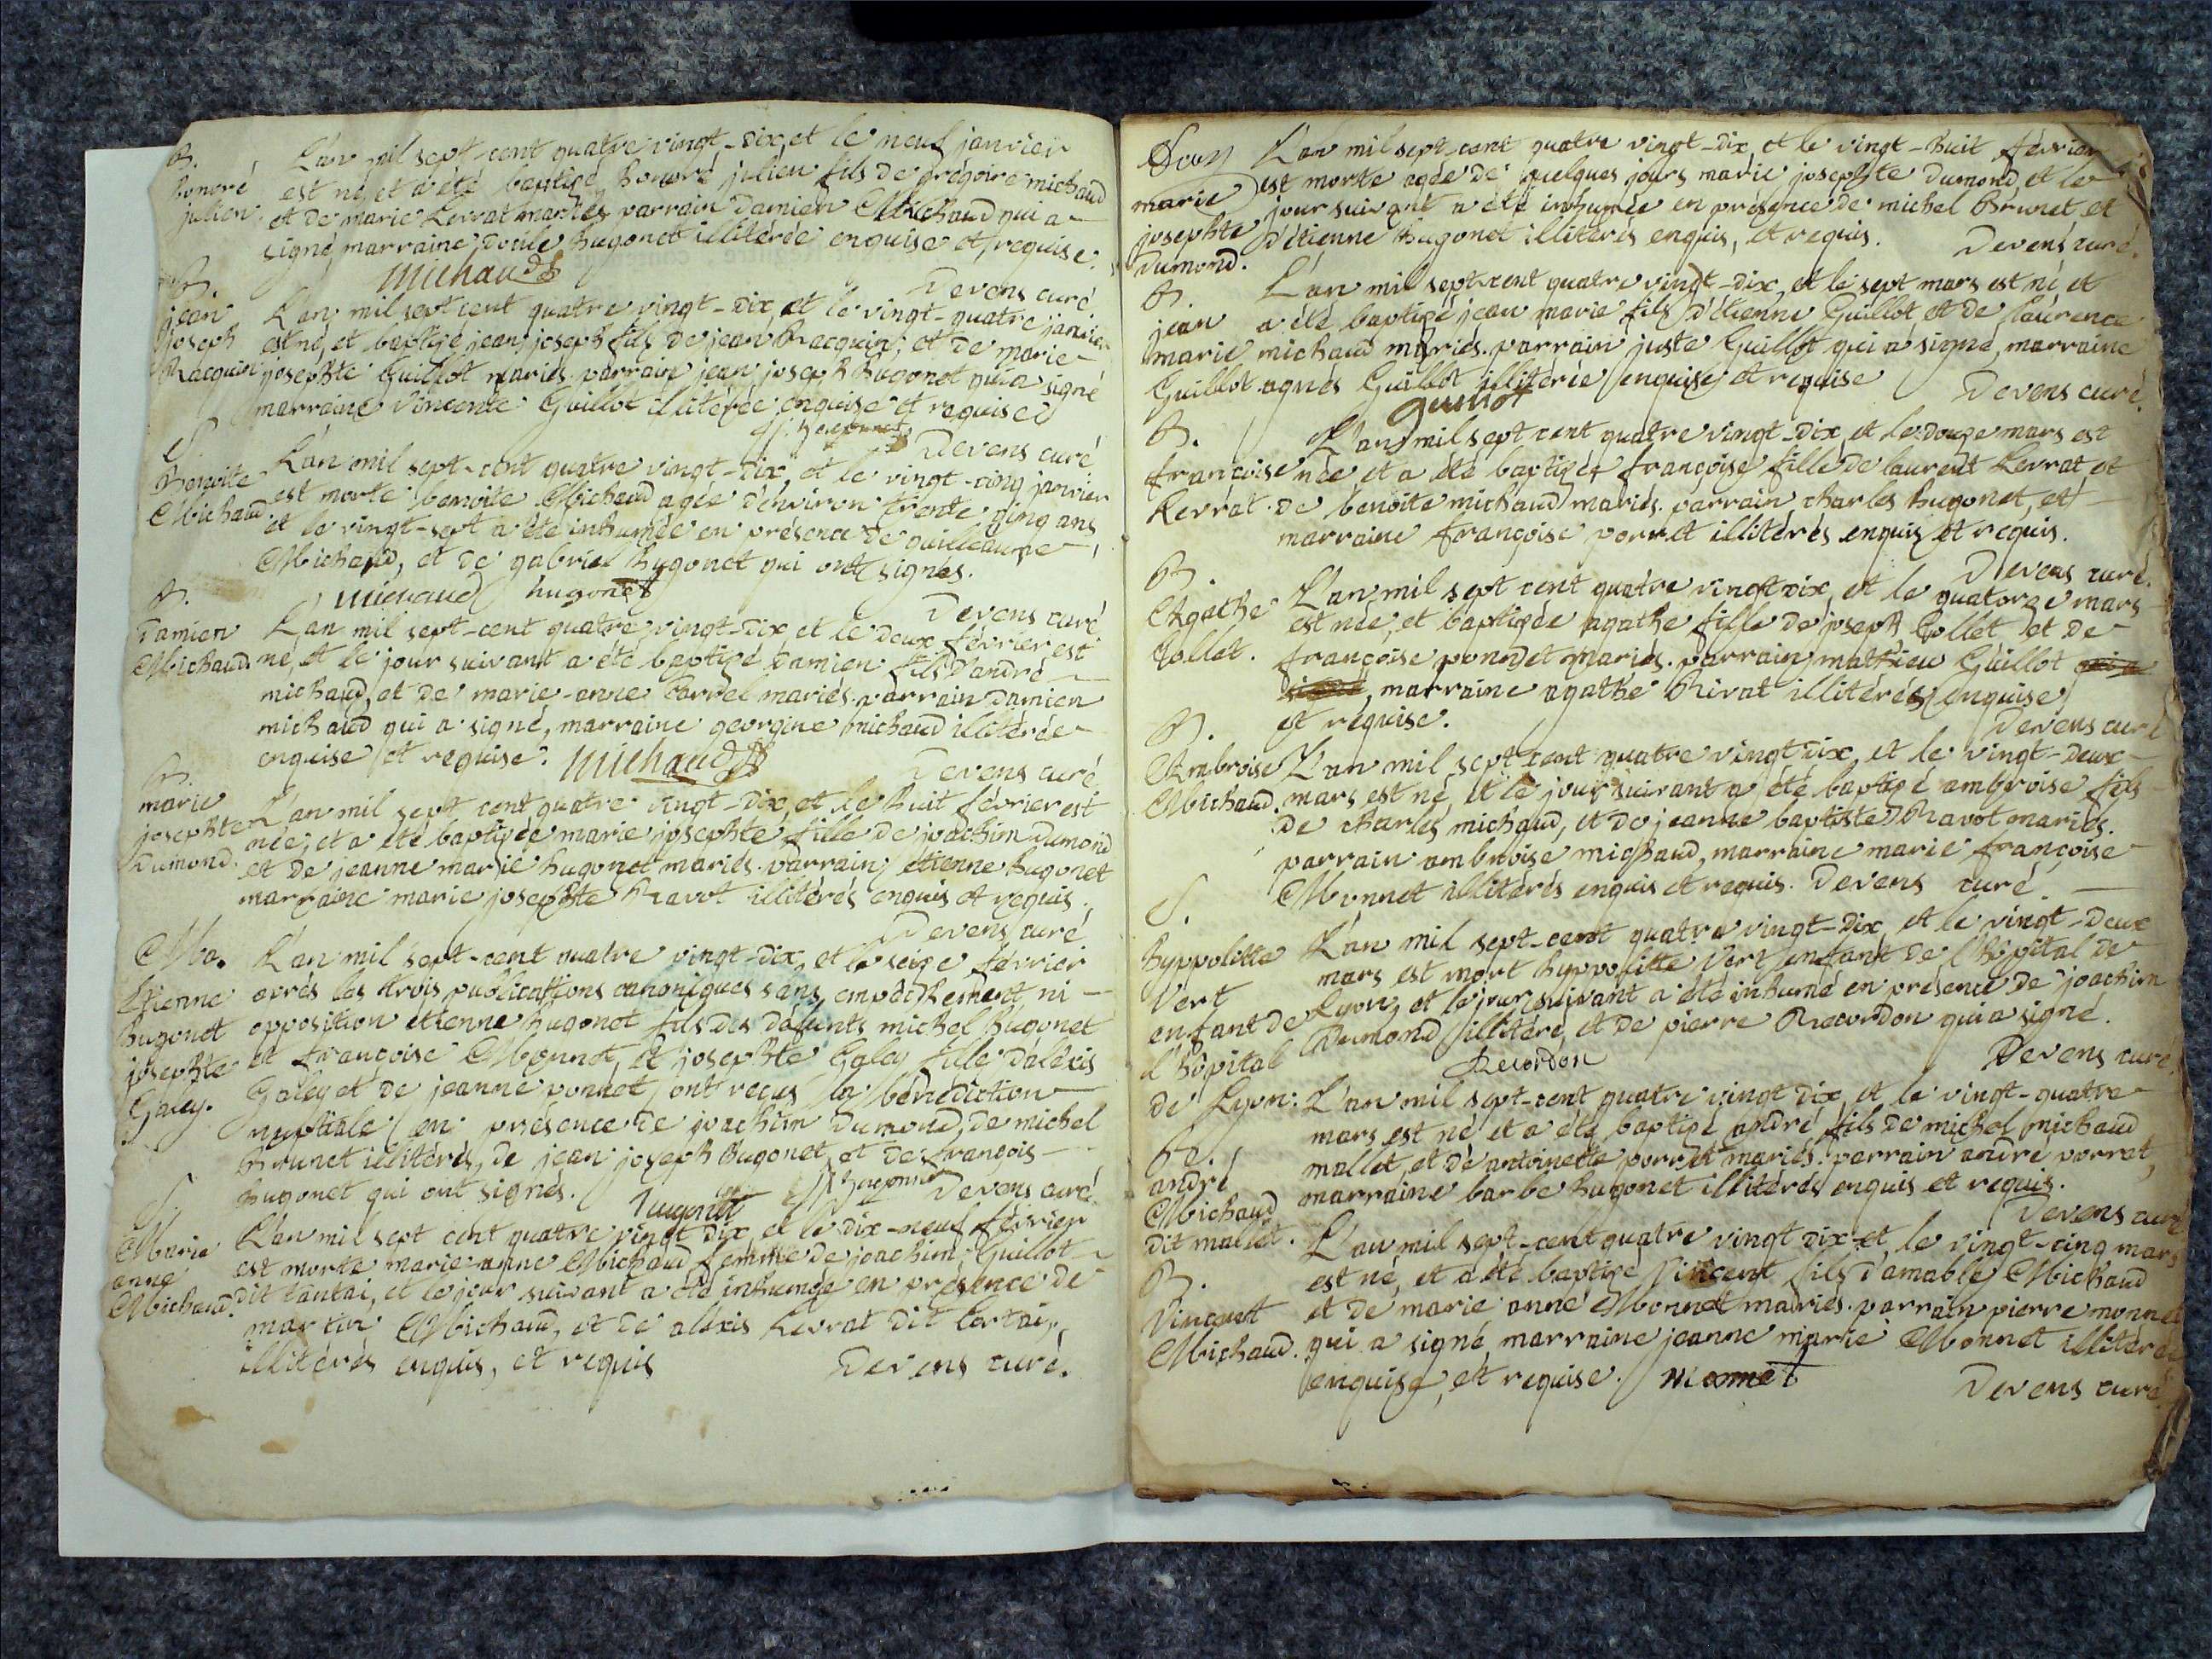 B.
honoré
julien.
L'an mil sept-cent quatre vingt-dix, et le neuf janvier
est né, et a été baptizé honoré julien fils de grégoire michaud
et de marie Kerrat mariés. parrain Damien Michaud qui a
signé, marraine, Doile hugonet illitérée enquise et requise.
Michaud
Devens curé
B.
jean
joseph
Racquin
L'an mil sept cent quatre vingt-dix, et le vingt-quatre janvier
est né, et baptizé jean joseph fils de jean Racquin, et de marie
josephte Guillot mariés. parrain jean joseph hugonet qui a signé
marraine Vincente Guillot illitérée enquise et requise
Devens curé
S.
Benoite
Michaud
L'an mil sept-cent quatre vingt-dix, et le vingt-cinq janvier
est morte benoite Michaud agée d'environ trente cinq ans
et le vingt-sept a été inhumée en présence de guilleaume
Michaud, et de gabriel hugonet qui ont signés.
Michaud hugonet
Devens curé
B.
Damien
Michaud.
L'an mil sept-cent quatre vingt-dix et le deux février est
né, et le jour suivant a été baptizé Damien fils d'andré
michaud, et de marie-anne mariés. parrain Damien
michaud qui a signé, marraine georgine michaud illitérée
enquise et requise. Michaud
Devens curé
B.
marie
josephte
Dumond.
L'an mil sept cent quatre vingt-dix, et le huit février est
née, et a été baptizée marie josephte fille de joachim Dumond
et de jeanne marie hugonet mariés. parrain, étienne hugonet
marraine marie josephte Ravot illitérés enquis et requis.
Devens curé
Ma.
Etienne
hugonet
josephte
Galey.
L'an mil sept-cent quatre vingt-dix, et le seize février
après les trois publications canoniques sans empêchement, ni
opposition étienne hugonet fils des défunts michel hugonet
et françoise Monnet, et josephte Galey fille d'aléxis
Galey et de jeanne ponnet, ont reçus la bénédiction
nuptiale en présence de joachim Dumond, de michel
Brunet illitérés, de jean joseph hugonet, et de françois
hugonet qui ont signés. hugonet
Devens curé
S.
Marie
anne
Michaud.
L'an mil sept cent quatre vingt dix, et le dix-neuf février
est morte marie-anne Michaud femme de joachim Guillot
dit tantai, et le jour suivant a été inhumée en présence de
martin Michaud, et de aléxis Kerrat dit
illitérés enquis, et requis Devens curé.
marie
josephte
Dumond.
L'an mil sept cent quatre vingt-dix, et le vingt-huit février
est morte agée de quelques jours marie josephte Dumond, et le
jour suivant a été inhumée en présence de michel Brunet et
d'étienne hugonet illitérés enquis, et requis. Devens curé.
B.
jean
marie
Guillot
L'an mil sept-cent quatre vingt-dix, et le sept mars est né et
a été baptizé jean marie fils d'étienne Guillot et de laurence
michaud mariés. parrain juste Guillot qui a signé, marraine
agnés Guillot illitérée enquise et requise Devens curé.
Guillot
B.
françoise
Kerrat.
L'an mil sept cent quatre vingt-dix, et le douze mars est
née, et a été baptizée françoise fille de laurent Kerrat et
de benoite michaud mariés. parrain charles hugonet, et
marraine françoise porret illitérés enquis et requis.
Devens curé.
B.
Agathe
Collet.
L'an mil sept cent quatre vingt dix, et le quatorze mars
est née, et baptizée agathe fille de joseph Collet et de
françoise ponnet mariés. parrain mathieu Guillot qui a
signé, marraine agathe Rivat illitérés enquise
et réquise.
Devens curé
B.
Ambroise
Michaud.
L'an mil sept-cent quatre vingt dix, et le vingt-deux
mars est né, et le jour suivant a été baptizé ambroise fils
de charles michaud, et de jeanne baptiste Ravot mariés.
parrain ambroise michaud, marraine marie françoise
Monnet illitérés enquis et requis. Devens curé.
S.
hyppolitte
Vert
enfant de
l'hôpital
de Lyon.
L'an mil sept-cent quatre vingt-dix, et le vingt-deux
mars est mort hyppolitte Vert enfant de l'hôpital de
Lyon, et le jour suivant a été inhumé en présence de joachim
Dumond illitéré, et de pierre Recordon qui a signé.
Recordon
Devens curé.
B.
andré
Michaud
dit mallet.
L'an mil sept-cent quatre vingt dix, et le vingt-quatre
mars est né et a été baptizé andré fils de michel michaud
mallet, et de antoinette porret mariés. parrain andré porret,
marraine barbe hugonet illitérés enquis et requis.
Devens curé
B.
Vincent
Michaud.
L'an mil sept-cent quatre vingt dix et le vingt-cinq mars
est né, et a été baptizé Vincent fils d'amable Michaud
et de marie anne Monnet mariés. parrain pierre monnet
qui a signé, marraine jeanne marie Monnet illitérée
enquise, et requise. monnet
Devens curé